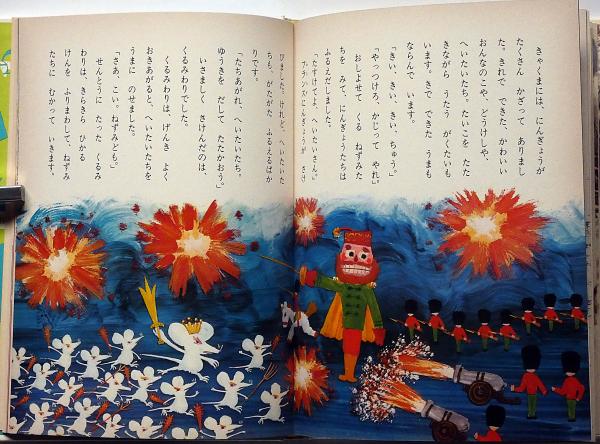 きゃくまには、にんぎょうが
たくさん かざって ありまし
た。きれで できた、かわいい
おんなのこや、どうけしや、
へいたいたち。たいこを たた
きながら うたう がくたいも
います。きで できた うまも
ならんで います。
「きい、きい、きい、ちゅう。」
「やっつけろ、かじって やれ。」
おしよせて くる ねずみた
ちを みて、にんぎょうたちは
ふるえだしました。
「たすけてよ、へいたいさん。」
フランス・にんぎょうが さけ
びました。けれど、へいたいた
ちも、がたがた ふるえるばか
りです。
「たちあがれ、へいたいたち。
ゆうきを だして たたかおう。」
いさましく さけんだのは、
くるみわりでした。
くるみわりは、げんき よく
おきあがると、へいたいたちを
うまに のせました。
「さあ、こい。ねずみども。」
せんとうに たった くるみ
わりは、きらきら ひかる
けんを ふりまわして、ねずみ
たちに むかって いきます。